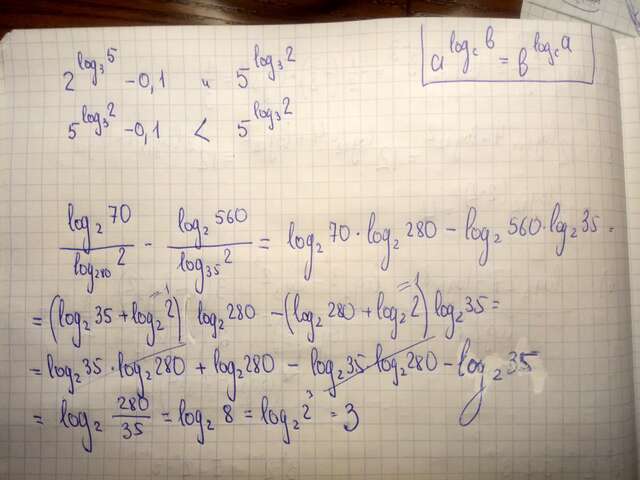 2^{log_3 5} - 0,1 и 5^{log_3 2}
a^{log_c b} = b^{log_c a}
5^{log_3 2} - 0,1 < 5^{log_3 2}
\frac{log_2 70}{log_{280} 2} - \frac{log_2 560}{log_{35} 2} = log_2 70 · log_2 280 - log_2 560 · log_2 35 =
= (log_2 35 + log_2 2) log_2 280 - (log_2 280 + log_2 2) log_2 35 =
= log_2 35 · log_2 280 + log_2 280 - log_2 35 · log_2 280 - log_2 35
= log_2 \frac{280}{35} = log_2 8 = log_2 2^3 = 3